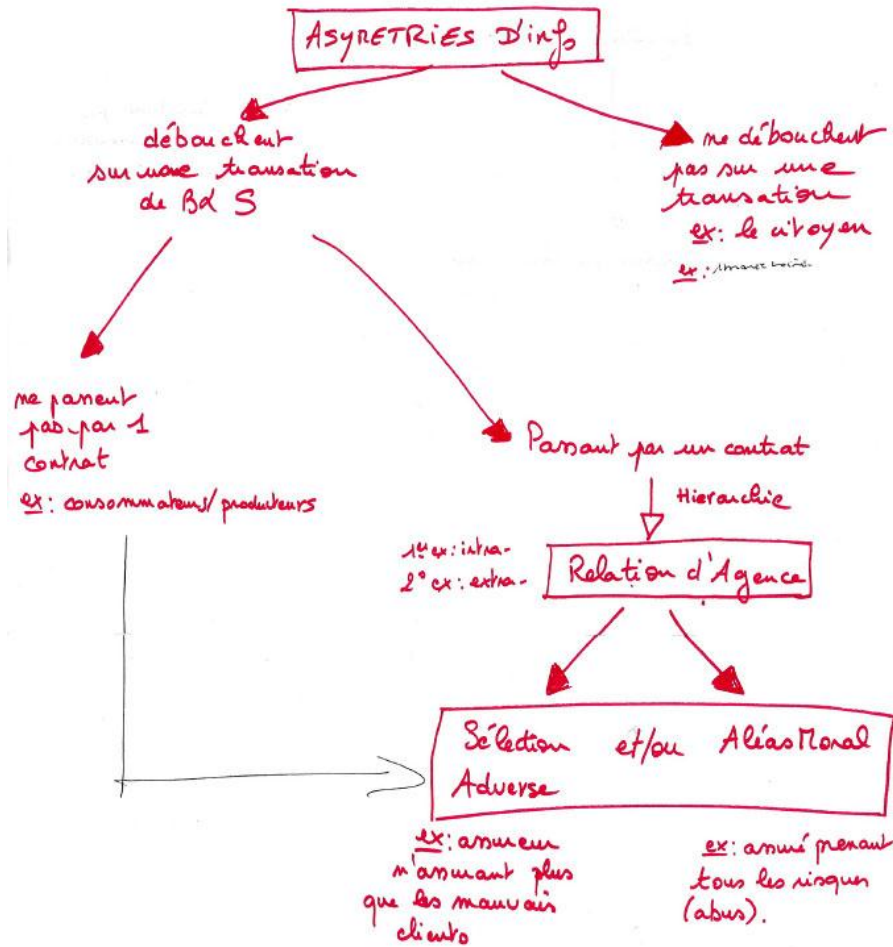 ASYRETRIES D'info
débouchent
sur une transation
de B& S
ne débouchent
pas sur une
transation
ex: le citoyen
ex:
ne passent
pas par 1
contrat
ex: consommateurs/producteurs
Passant par un contrat
Hierarchie
1er ex: intra-
2° ex: extra-
Relation d'Agence
Sélection et/ou Aléas Moral
Adverse
ex: assureur
n'assurant plus
que les mauvais
clients
ex: assuré prenant
tous les risques
(abus).